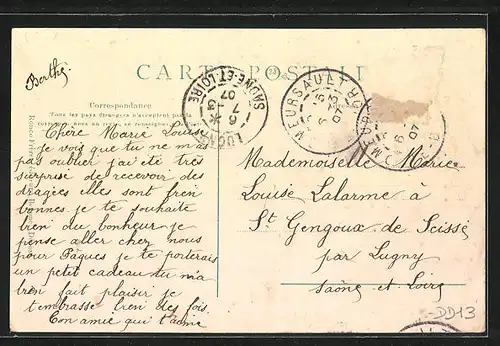 Berthe
CARTE POSTALE
Correspondance
Tous les pays étrangers n'acceptent pas la
Chère Marie Louise
je vois que tu ne m'as
pas oublier j'ai été très
surprise de recevoir des
dragées elles sont bien
bonnes je te souhaite
bien du bonheur je
pense aller chez nous
pour Pâques je te porterais
un petit cadeau tu m'a
bien fait plaisir je
t'embrasse bien des fois
Ton amie qui t'aime
LUGNY
SAONE-ET-LOIRE
6
07
MEURSAULT
6
07
MEURSAULT
6
07
Mademoiselle Marie
Louise Lalarme à
St Gengoux de Scissé
par Lugny
Saône et Loire
DD13